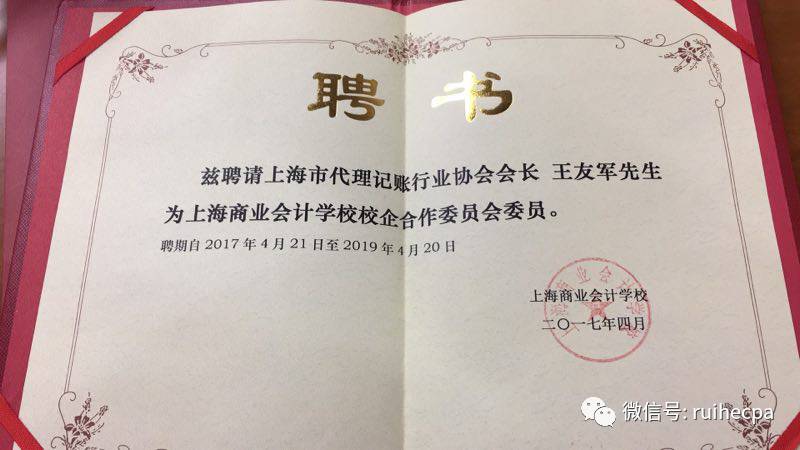 聘书
兹聘请上海市代理记账行业协会会长 王友军先生
为上海商业会计学校校企合作委员会委员。
聘期自2017年4月21日至2019年4月20日
上海商业会计学校
二〇一七年四月
上海商业会计学校
微信号: ruihecpa